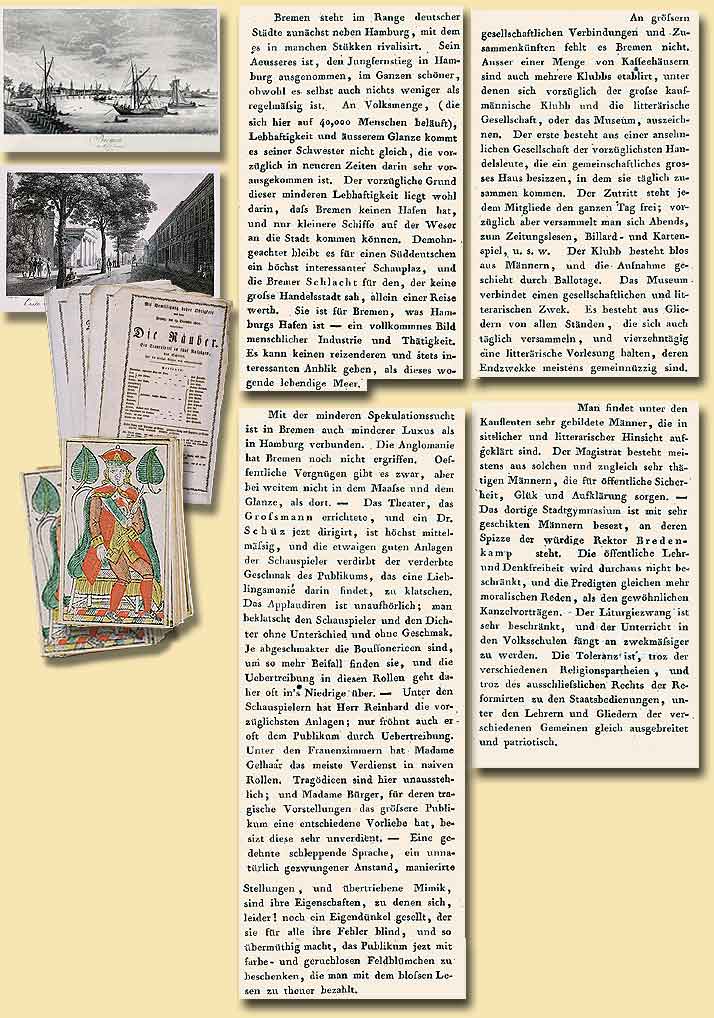 Bremen steht im Range deutscher
Städte zunächst neben Hamburg, mit dem
es in manchen Stükken rivalisirt. Sein
Aeusseres ist, den Jungfernstieg in Ham-
burg ausgenommen, im Ganzen schöner,
obwohl es selbst auch nichts weniger als
regelmäſsig ist. An Volksmenge, (die
sich hier auf 40,000 Menschen beläuft),
Lebhaftigkeit und äusserem Glanze kommt
es seiner Schwester nicht gleich, die vor-
züglich in neueren Zeiten darin sehr vor-
ausgekommen ist. Der vorzügliche Grund
dieser minderen Lebhaftigkeit liegt wohl
darin, daſs Bremen keinen Hafen hat,
und nur kleinere Schiffe auf der Weser
an die Stadt kommen können. Demohn-
geachter bleibt es für einen Süddeutschen
ein höchst interessanter Schauplaz, und
die Bremer Schlacht für den, der keine
groſse Handelsstadt sah, allein einer Reise
werth. Sie ist für Bremen, was Ham-
burgs Hafen ist — ein vollkommnes Bild
menschlicher Industrie und Thätigkeit.
Es kann keinen reizenderen und stets in-
teressanten Anblik geben, als dieses wo-
gende lebendige Meer.
Mit der minderen Spekulationssucht
ist in Bremen auch minderer Luxus als
in Hamburg verbunden. Die Anglomanie
hat Bremen noch nicht ergriffen. Oef-
fentliche Vergnügen gibt es zwar, aber
bei weitem nicht in dem Maaſse und dem
Glanze, als dort. — Das Theater, das
Groſsmann errichtete, und ein Dr.
Schüz jezt dirigirt, ist höchst mittel-
mäſsig, und die etwaigen guten Anlagen
der Schauspieler verdirbt der verderbte
Geschmak des Publikums, das eine Lieb-
lingsmanie darin findet, zu klatschen.
Das Applaudiren ist unaufhörlich; man
beklatscht den Schauspieler und den Dich-
ter ohne Unterschied und ohne Geschmak.
Je abgeschmakter die Bouffonericen sind,
um so mehr Beifall finden sie, und die
Uebertreibung in diesen Rollen geht da-
her oft in's Niedrige über. — Unter den
Schauspielern hat Herr Reinhard die vor-
züglichsten Anlagen; nur fröhnt auch er
oft dem Publikum durch Uebertreibung.
Unter den Frauenzimmern hat Madame
Gelhaar das meiste Verdienst in naiven
Rollen. Tragödieen sind hier unaussteh-
lich; und Madame Bürger, für deren tra-
gische Vorstellungen das gröſsere Publi-
kum eine entschiedene Vorliebe hat, be-
sizt diese sehr unverdient. — Eine ge-
dehnte schleppende Sprache, ein unna-
türlich gezwungener Anstand, manierirte
Stellungen, und übertriebene Mimik,
sind ihre Eigenschaften, zu denen sich,
leider! noch ein Eigendünkel gesellt, der
sie für alle ihre Fehler blind, und so
übermüthig macht, das Publikum jezt mit
farbe- und geruchlosen Feldblümchen zu
beschenken, die man mit dem bloſsen Le-
sen zu theuer bezahlt.
An gröſsern
gesellschaftlichen Verbindungen und Zu-
sammenkünften fehlt es Bremen nicht.
Ausser einer Menge von Kaffeehäusern
sind auch mehrere Klubbs etablirt, unter
denen sich vorzüglich der groſse kauf-
männische Klubb und die litterärische
Gesellschaft, oder das Museum, auszeich-
nen. Der erste besteht aus einer ansehn-
lichen Gesellschaft der vorzüglichsten Han-
delsleute, die ein gemeinschaftliches gros-
ses Haus besizzen, in dem sie täglich zu-
sammen kommen. Der Zutritt steht je-
dem Mitgliede den ganzen Tag frei; vor-
züglich aber versammelt man sich Abends,
zum Zeitungslesen, Billard- und Karten-
spiel, u. s. w. Der Klubb besteht blos
aus Männern, und die Aufnahme ge-
schieht durch Ballotage. Das Museum
verbindet einen gesellschaftlichen und lit-
terarischen Zwek. Es besteht aus Glie-
dern von allen Ständen, die sich auch
täglich versammeln, und vierzehntägig
eine litterärische Vorlesung halten, deren
Endzwekke meistens gemeinnüzzig sind.
Man findet unter den
Kaufleuten sehr gebildete Männer, die in
sittlicher und litterarischer Hinsicht auf-
geklärt sind. Der Magistrat besteht mei-
stens aus solchen und zugleich sehr thä-
tigen Männern, die für öffentliche Sicher-
heit, Glük und Aufklärung sorgen. —
Das dortige Stadtgymnasium ist mit sehr
geschikten Männern besezt, an deren
Spizze der würdige Rektor Breden-
kamp steht. Die öffentliche Lehr-
und Denkfreiheit wird durchaus nicht be-
schränkt, und die Predigten gleichen mehr
moralischen Reden, als den gewöhnlichen
Kanzelvorträgen. Der Liturgiezwang ist
sehr beschränkt, und der Unterricht in
den Volksschulen fängt an zwekmäſsiger
zu werden. Die Toleranz ist, troz der
verschiedenen Religionspartheien, und
troz des ausschlieſslichen Rechts der Re-
formirten zu den Staatsbedienungen, un-
ter den Lehrern und Gliedern der ver-
schiedenen Gemeinen gleich ausgebreitet
und patriotisch.
Bremen
Die Räuber.